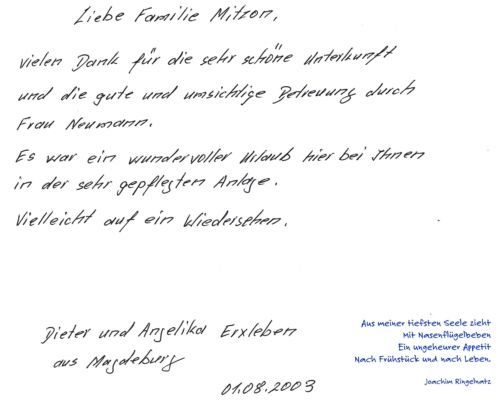 Liebe Familie Mitzon,
vielen Dank für die sehr schöne Unterkunft
und die gute und umsichtige Betreuung durch
Frau Neumann.
Es war ein wundervoller Urlaub hier bei Ihnen
in der sehr gepflegten Anlage.
Vielleicht auf ein Wiedersehen.
Dieter und Angelika Erxleben
aus Magdeburg
01.08.2003
Aus meiner tiefsten Seele zieht
Mit Nasenflügelbeben
Ein ungeheurer Appetit
Nach Frühstück und nach Leben.
Joachim Ringelnatz